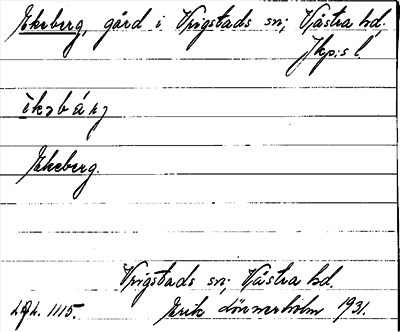 Ekeberg, gård i Vrigstads sn; Västra hd.
Jkp:s l.
Ekeberg.
Vrigstads sn; Västra hd.
1115. Erik Lönnerholm 1931.